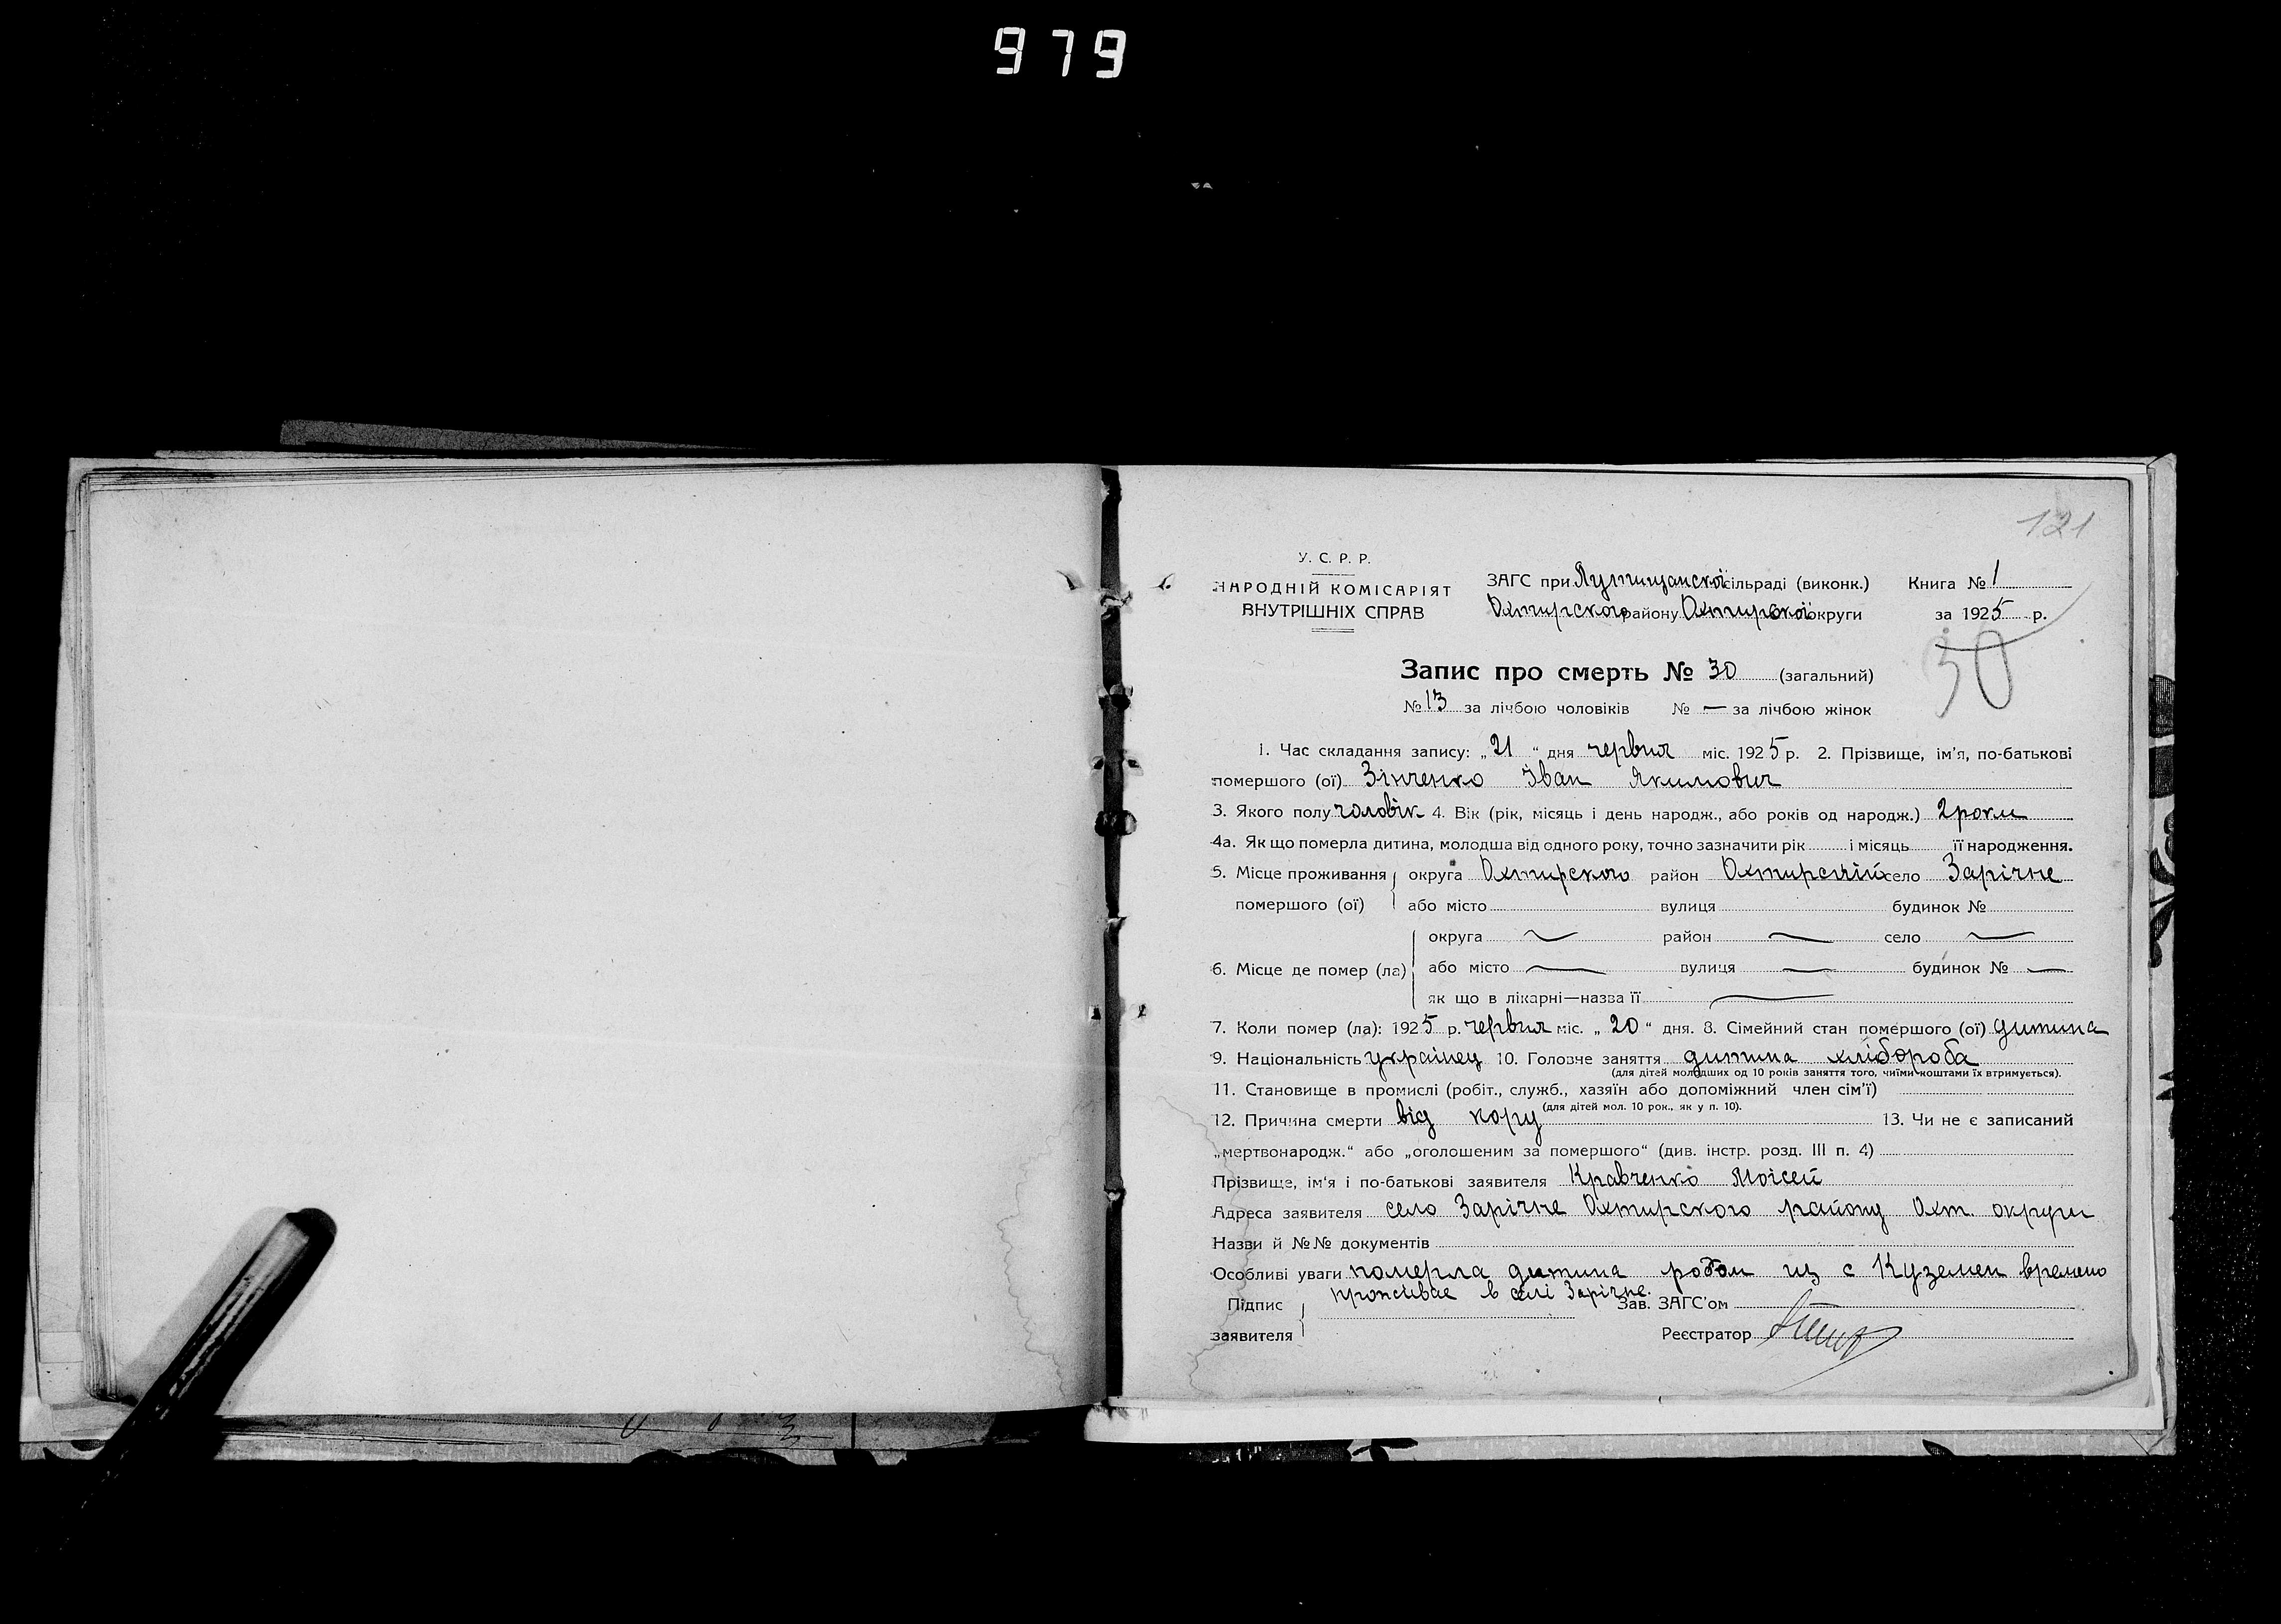 979
121
У. С. Р. Р.
НАРОДНІЙ КОМІСАРІЯТ
ВНУТРІШНІХ СПРАВ
ЗАГС при Лутищанскої сільраді (виконк.) Книга № 1
Охтирского району Охтирскої округи за 1925 р.
30
Запис про смерть № 30 (загальний)
№ 13 за лічбою чоловіків № — за лічбою жінок
1. Час складання запису: „21“ дня червня міс. 1925 р. 2. Прізвище, ім'я, по-батькові
помершого (ої) Зінченко Іван Якимович
3. Якого полу чоловік 4. Вік (рік, місяць і день народж., або років од народж.) 2 роки
4а. Як що померла дитина, молодша від одного року, точно зазначити рік і місяць її народження.
5. Місце проживання округа Охтирского район Охтирский село Зарічне
помершого (ої) або місто вулиця будинок №
округа — район — село —
6. Місце де помер (ла) або місто — вулиця — будинок № —
як що в лікарні—назва її —
7. Коли помер (ла): 1925 р. червня міс. „20“ дня. 8. Сімейний стан помершого (ої) дитина
9. Національність українец 10. Головне заняття дитина хлібороба
(для дітей молодших од 10 років заняття того, чиїми коштами їх втримується).
11. Становище в промислі (робіт., служб., хазяїн або допоміжний член сім'ї)
(для дітей мол. 10 рок., як у п. 10).
12. Причина смерти від кору 13. Чи не є записаний
„мертвонародж.“ або „оголошеним за помершого“ (див. інстр. розд. III п. 4)
Прізвище, ім'я і по-батькові заявителя Кравченко Моісей
Адреса заявителя село Зарічне Охтирского району Охт. округи
Назви й №№ документів
Особливі уваги померла дитина родом из с Куземен времено
проживае в селі Зарічне.
Підпис Зав. ЗАГС'ом
заявителя Реєстратор